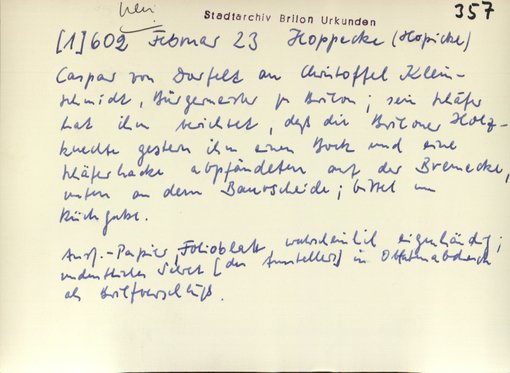 Stadtarchiv Brilon Urkunden
357
[1]602 Februar 23 Hoppecke (Hopicke)
Caspar von Dorfelt an Christoffel Klein-
schmidt, Bürgermeister zu Brilon; sein Schäfer
hat ihm berichtet, daß die Briloner Holz-
knechte gestern ihm einen Bock und eine
Schäferhacke abpfändeten auf der Bremecke,
unten an dem Bauscheide; bittet um
Rückgabe.
Ausf.-Papier, Folioblatt, wahrscheinlich eigenhändig;
undeutliches Siegel [des Ausstellers] in Oblatenabdruck
als Briefverschluß.